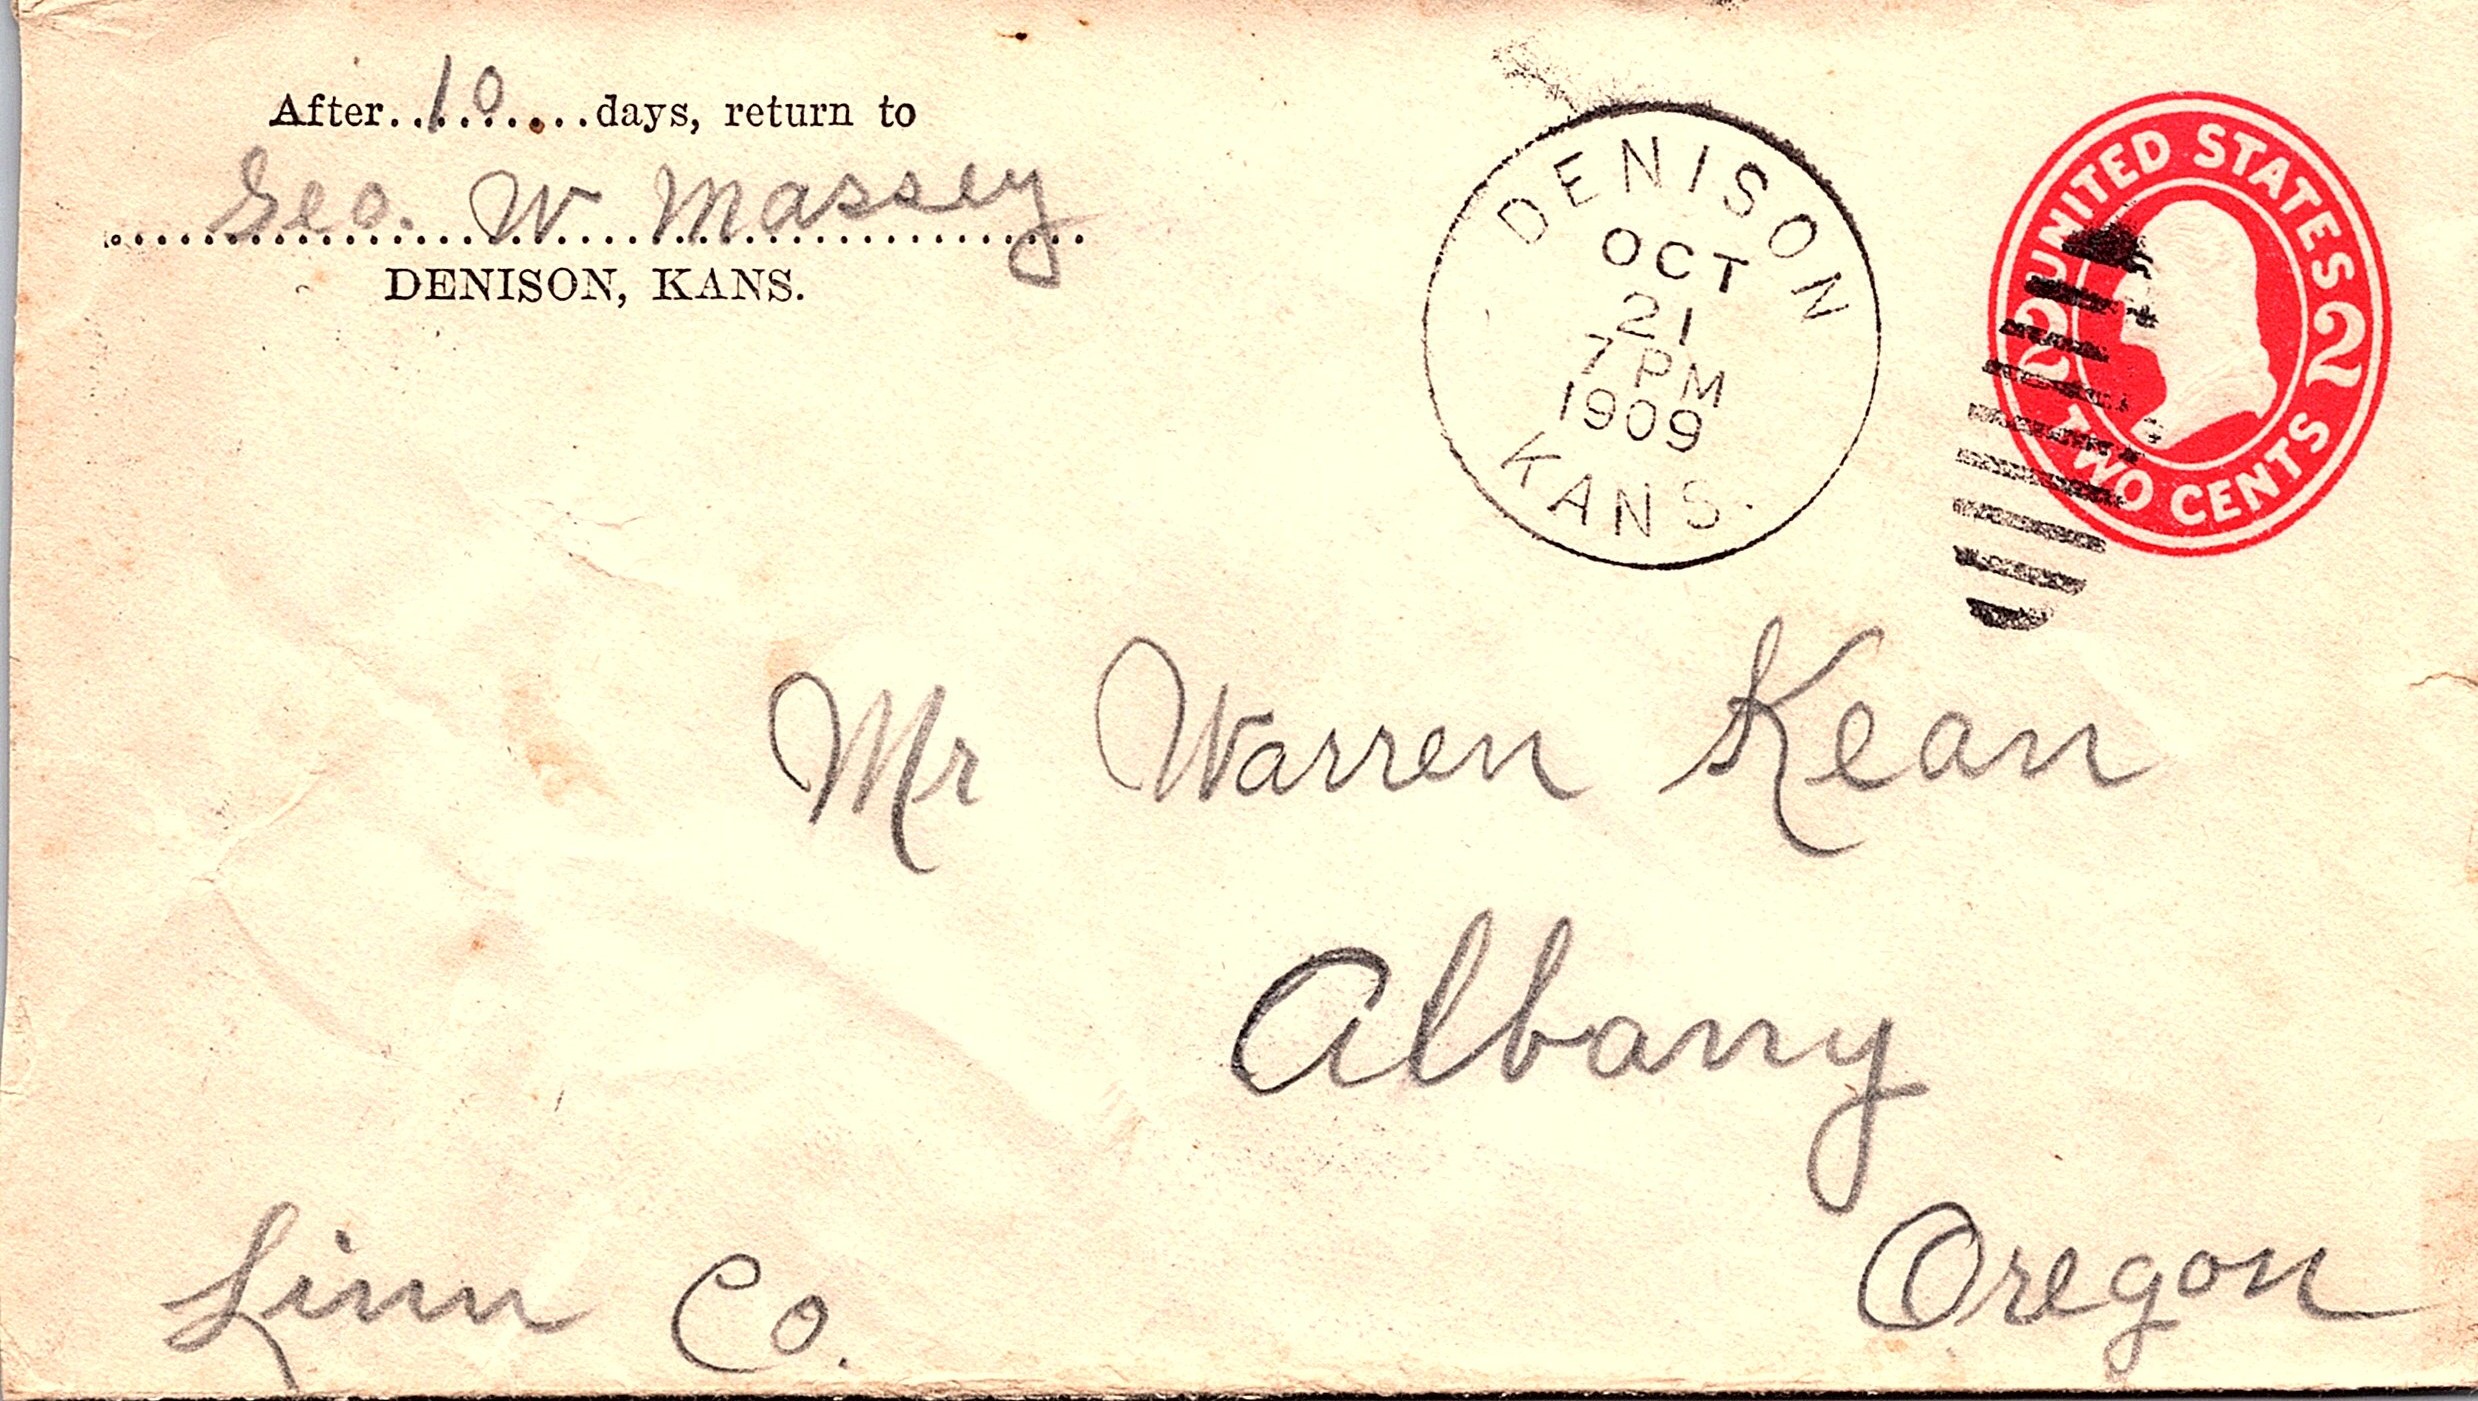 After..10......days, return to
Geo. W Massey
DENISON, KANS.
DENISON
OCT
21
7 PM
1909
KANS.
UNITED STATES
2 2
TWO CENTS
Mr Warren Kean
Albany
Oregon
Linn Co.